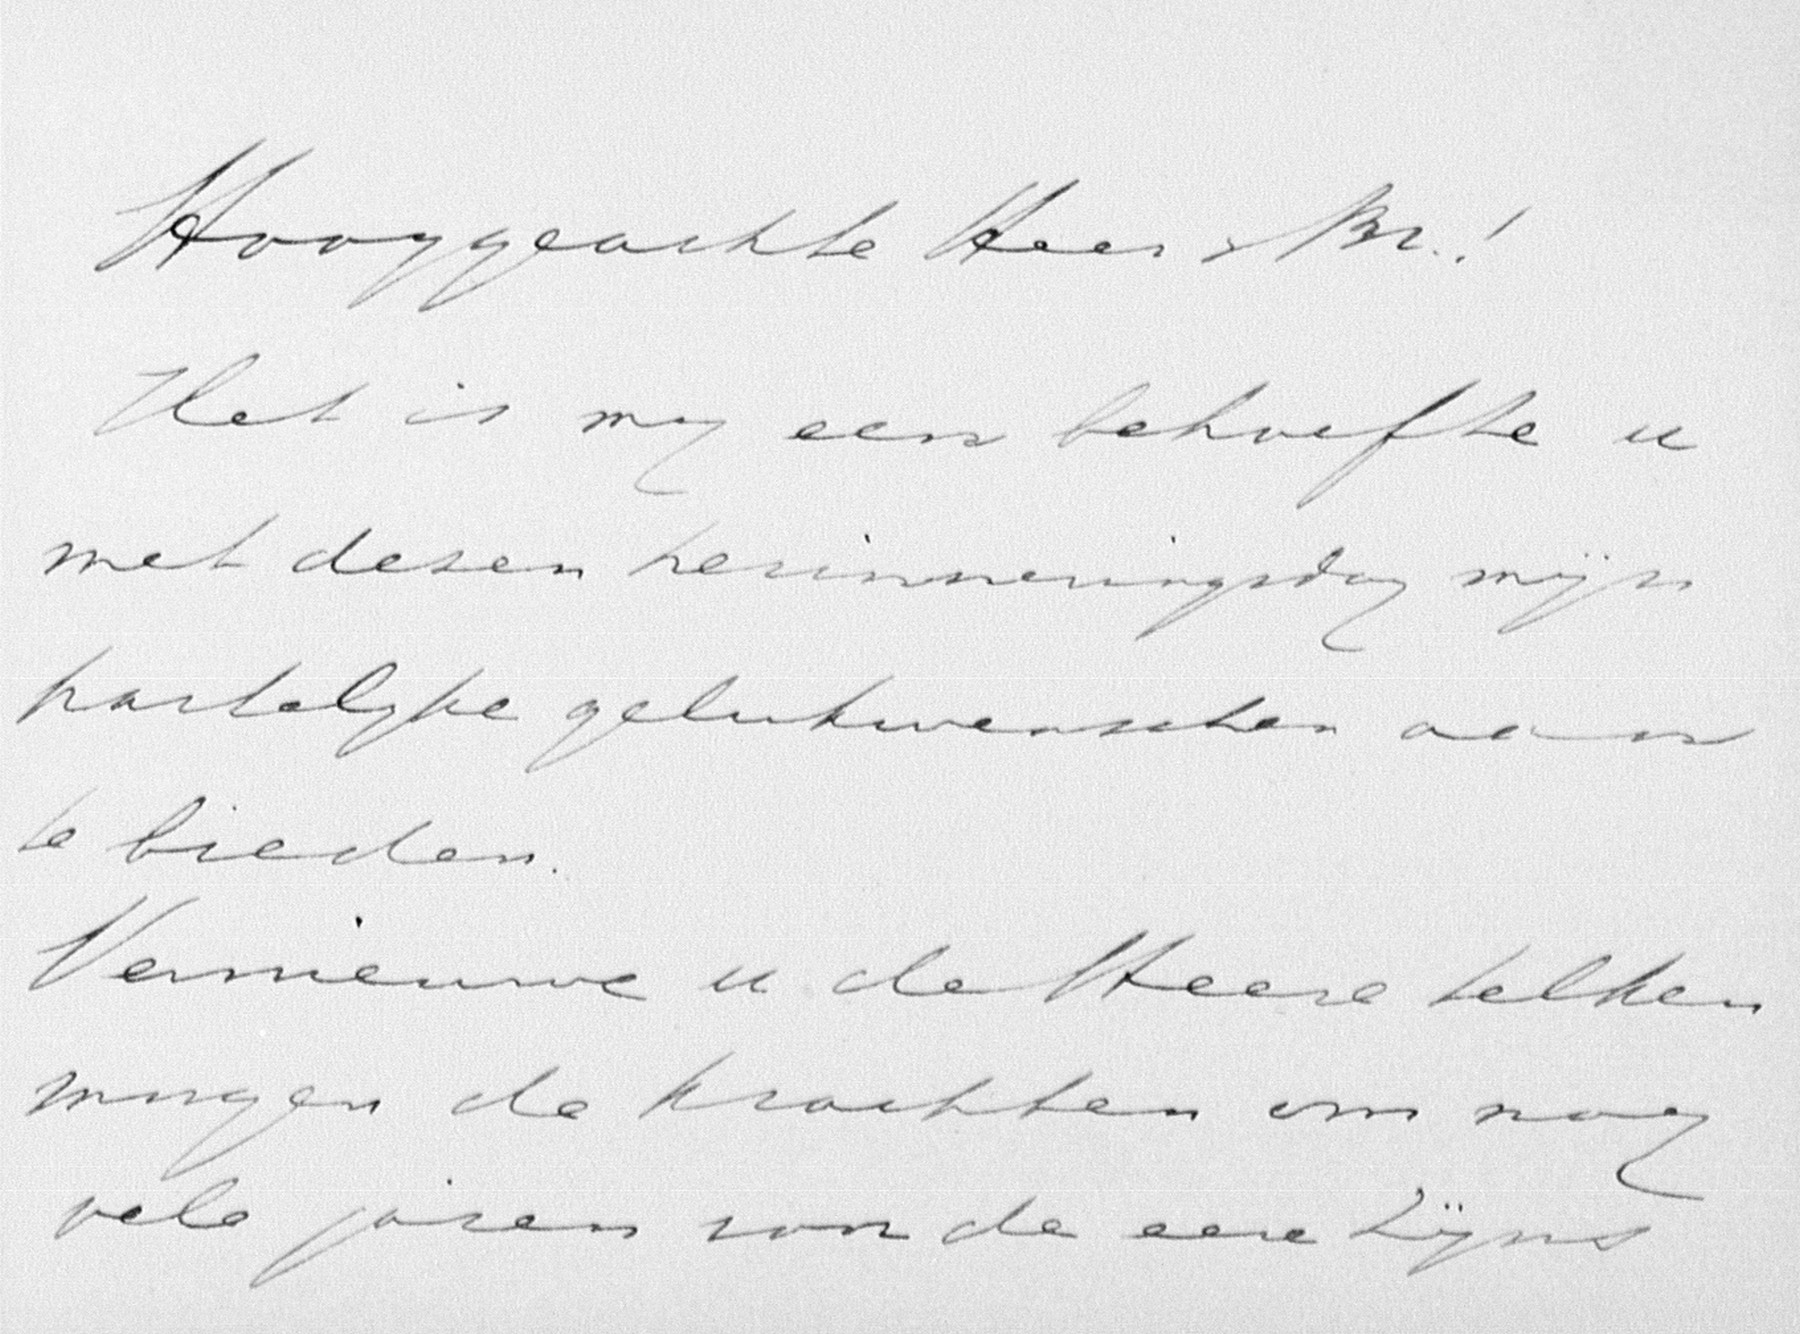 Hooggeachte Heer & Br.!
Het is mij een behoefte u
met dezen herinneringsdag mijn
hartelijke gelukwenschen aan
te bieden.
Vernieuwe u de Heere telken
morgen de krachten om nog
vele jaren voor de eere Zijns